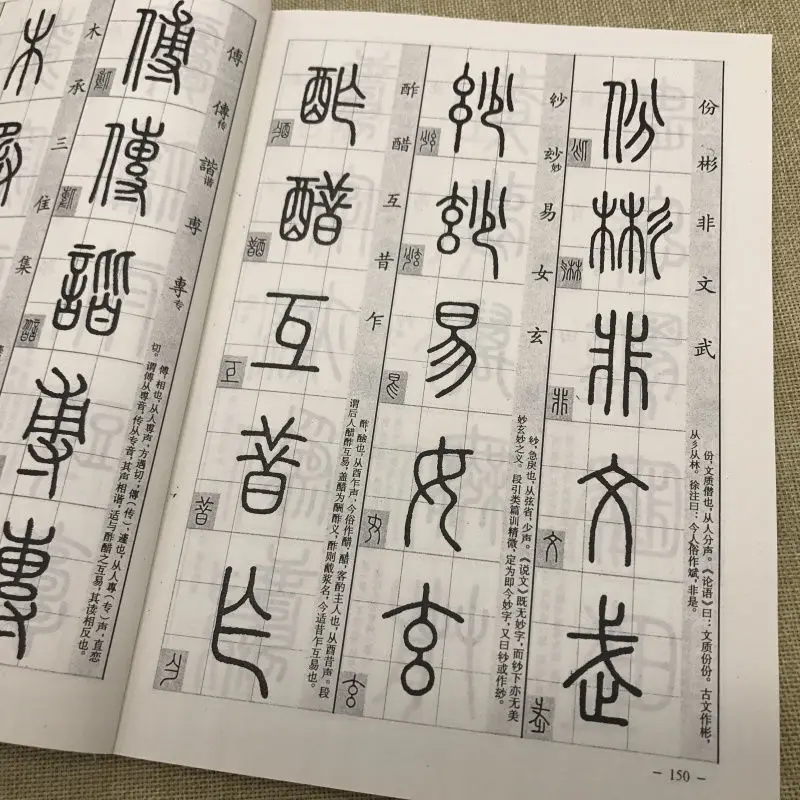 份 彬 非 文 武
份,文质僭也,从人分声。《论语》曰:文质份份。古文作彬,
从彡从林。徐注曰:今人俗作斌,非是。
份 彬 非 文 武
紗 玅妙 易 女 玄
纱,急戾也,从弦省,少声。《说文》既无妙字,而纱下亦无美
妙玄妙之义。段引类篇训精微,定为即今妙字,又曰纱或作玅。
紗 玅 易 女 玄
酢 醋 互 昔 乍
酢,醶也,从酉乍声,今俗作醋,醋,客酌主人也,从酉昔声。段
谓后人醋酢互易,盖醋为酬酢义,酢则酨浆名,今适昔乍互易也。
酢 醋 互 昔 乍
— 150 —
傅 傳传 諧谐 尃 專专
傅,相也,从人尃声,方遇切;傳(传),遽也,从人專(专)声,直恋
切。谓傅从尃音,传从专音,其声相谐,适与酢醋之互易,其读相反也。
傅 傳 諧 尃 專
木 承 三 隹 集
木